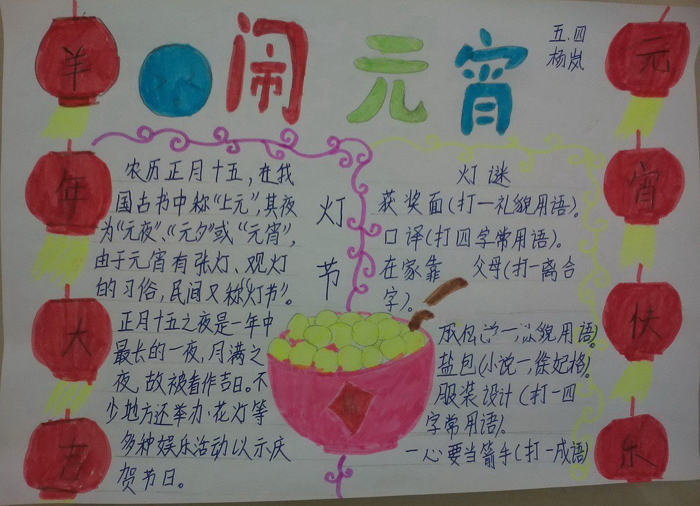 闹元宵
五.四
杨岚
羊年大吉
元宵快乐
灯节
农历正月十五,在我
国古书中称“上元”,其夜
为“元夜”、“元夕”或“元宵”,
由于元宵有张灯、观灯
的习俗,民间又称“灯节”。
正月十五之夜是一年中
最长的一夜,月满之
夜,故被看作吉日。不
少地方还举办花灯等
多种娱乐活动以示庆
贺节日。
灯谜
获奖面(打一礼貌用语)。
口译(打四字常用语)。
在家靠 父母(打一离合
字)。
貌用语)。
盐包(小说一徐妃格)。
服装设计(打一四
字常用语)。
一心要当箭手(打一成语)